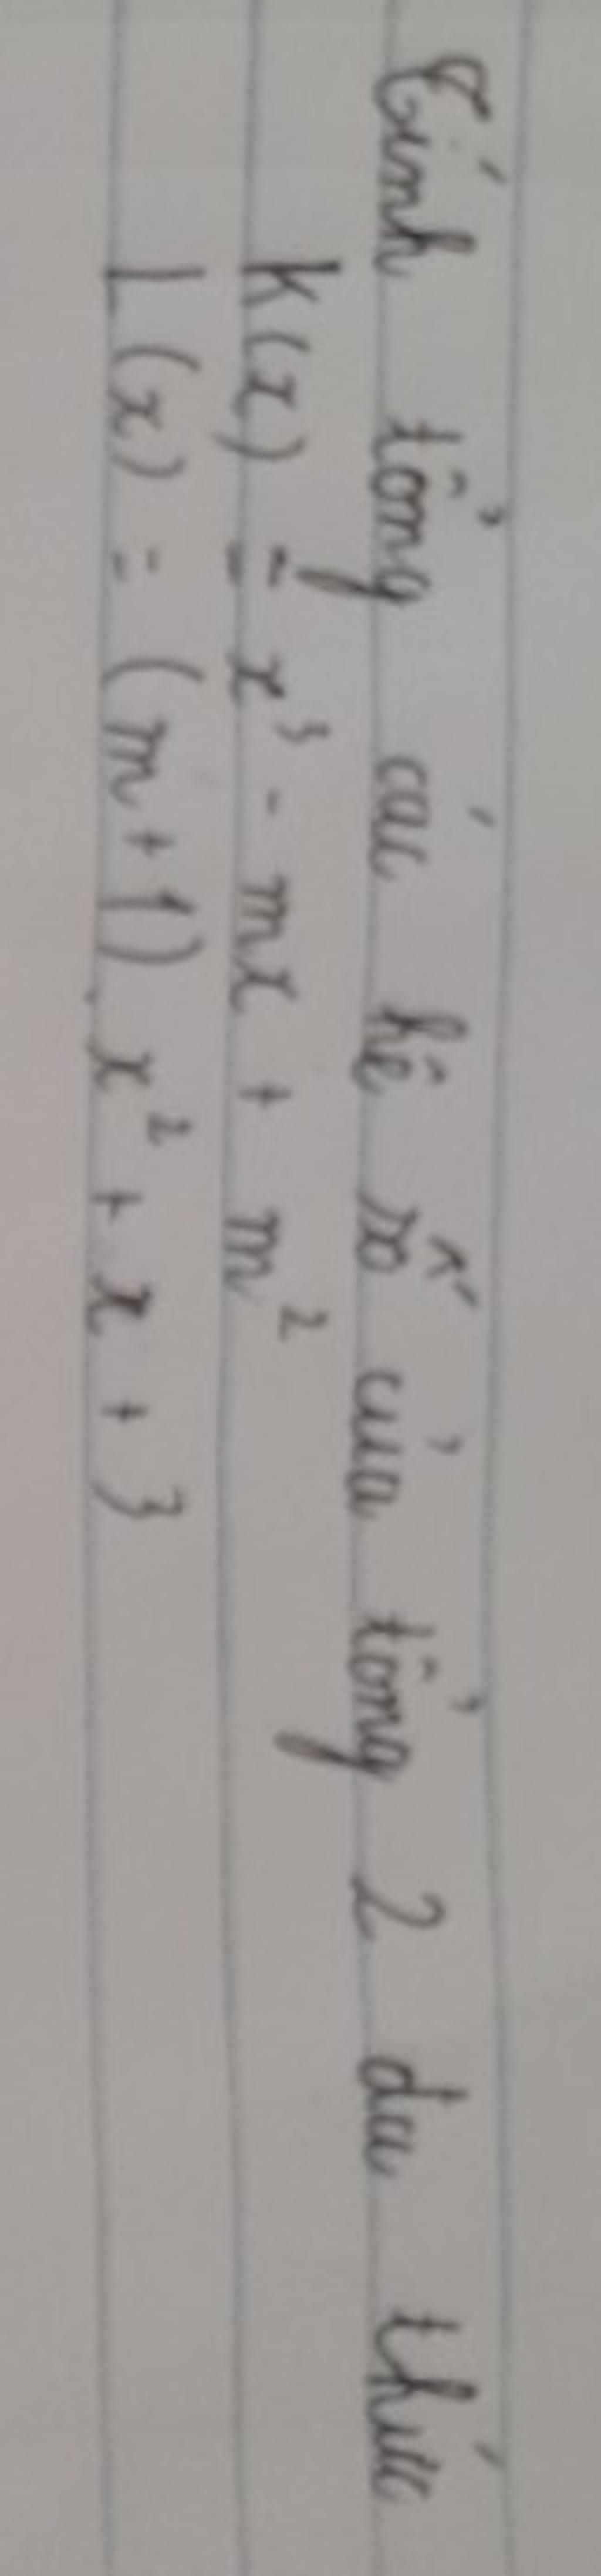 Tính tổng các hệ số của tổng 2 đa thức
K(x) = x³ - mx + m²
L(x) = (m+1).x² + x + 3